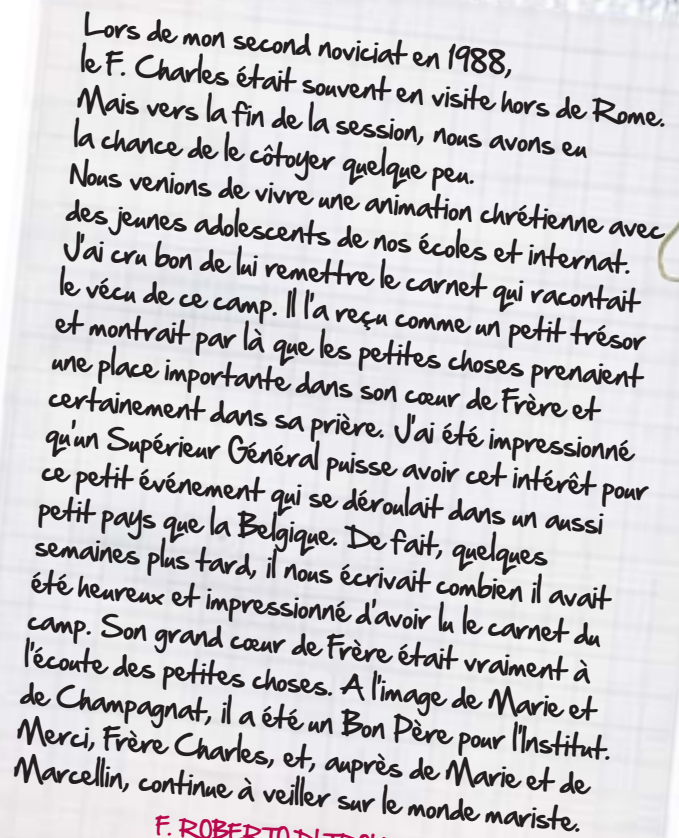 Lors de mon second noviciat en 1988,
le F. Charles était souvent en visite hors de Rome.
Mais vers la fin de la session, nous avons eu
la chance de le côtoyer quelque peu.
Nous venions de vivre une animation chrétienne avec
des jeunes adolescents de nos écoles et internat.
J'ai cru bon de lui remettre le carnet qui racontait
le vécu de ce camp. Il l'a reçu comme un petit trésor
et montrait par là que les petites choses prenaient
une place importante dans son cœur de Frère et
certainement dans sa prière. J'ai été impressionné
qu'un Supérieur Général puisse avoir cet intérêt pour
ce petit événement qui se déroulait dans un aussi
petit pays que la Belgique. De fait, quelques
semaines plus tard, il nous écrivait combien il avait
été heureux et impressionné d'avoir lu le carnet du
camp. Son grand cœur de Frère était vraiment à
l'écoute des petites choses. A l'image de Marie et
de Champagnat, il a été un Bon Père pour l'Institut.
Merci, Frère Charles, et, auprès de Marie et de
Marcellin, continue à veiller sur le monde mariste.
F. ROBERTO